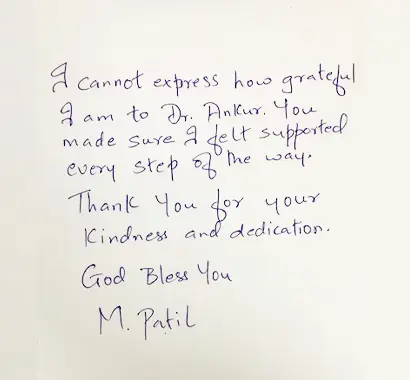 I cannot express how grateful
I am to Dr. Ankur. You
made sure I felt supported
every step of the way.
Thank You for your
Kindness and dedication.
God Bless You
M. Patil